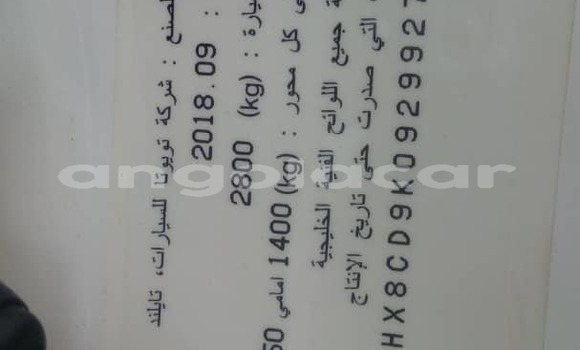 : شركة تويوتا للسيارات، تايلند
: 2018.09
: (kg) 2800
كل محور : (kg) 1400 امامي
جميع اللوائح الفنية الخليجية
التي صدرت حتى تاريخ الإنتاج
HX8CD9K092992
angolacar